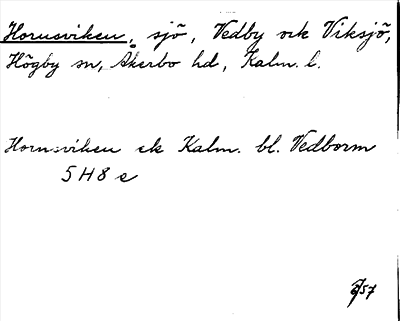 Hornsviken, sjö, Vedby och Viksjö,
Högby sn, Åkerbo hd, Kalm. l.
Hornsviken ek Kalm. bl. Vedborm
5 H 8 e
57